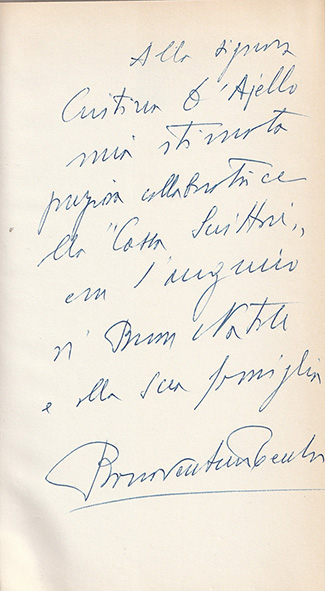 Alla signora
Cristina D'Ajello
mia stimata
preziosa collaboratrice
alla "Cassa Scrittori",
con l'augurio
di Buon Natale
e alla sua famiglia
Bonaventura Tecchi